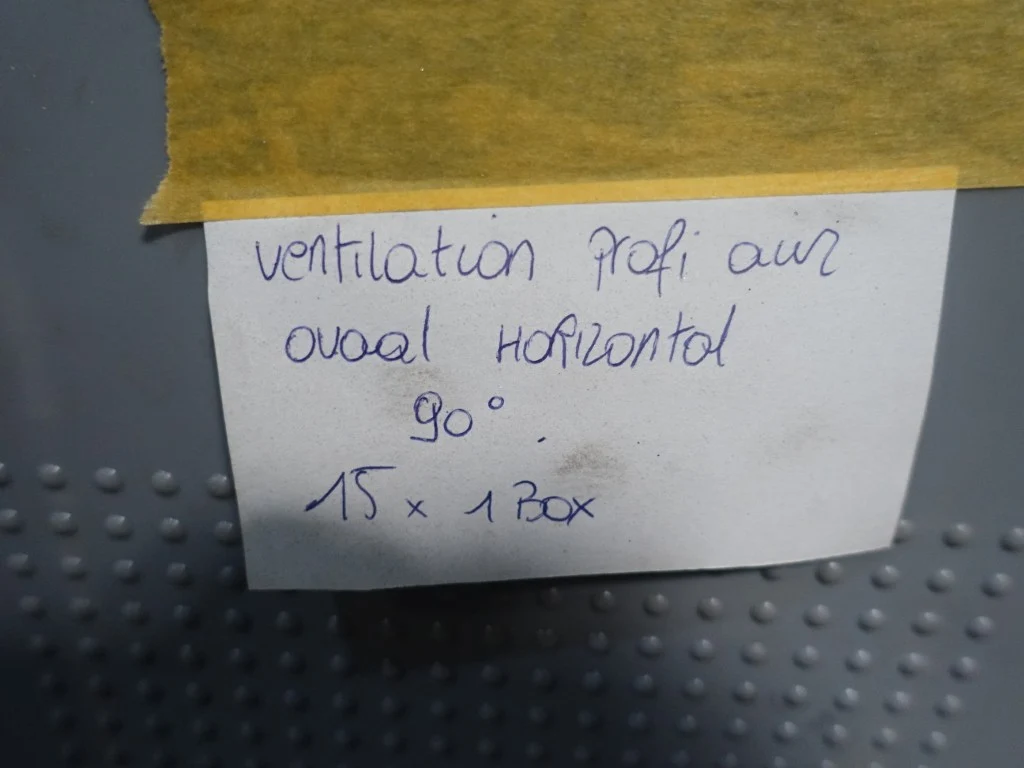 ventilation profi air
ovaal HORIZONtal
90° .
15 x 1 Box